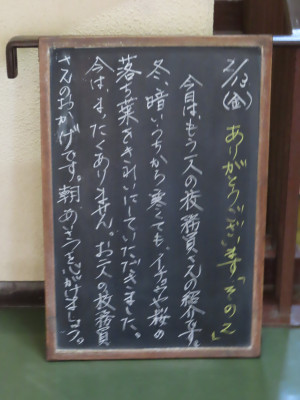 2/13(金) ありがとうございます「その2」
今日は、もう一人の校務員さんの紹介です。
冬、暗いうちから寒くても、イチョウや桜の
落ち葉をきれいにしていただきました。
今は、まったくありません。お二人の校務員
さんのおかげです。朝、めいさつを心がけましょう。